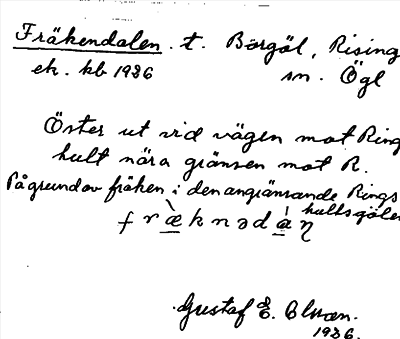 Fräkendalen. t. Borgöl, Rising
ek. kb 1936 sn. Ögl
Öster ut vid vägen mot Ring
hult nära gränsen mot R.
På grund av fräken i den angränsande Rings
hultsgölen
fræknədaŋ
Gustaf E.
1936.